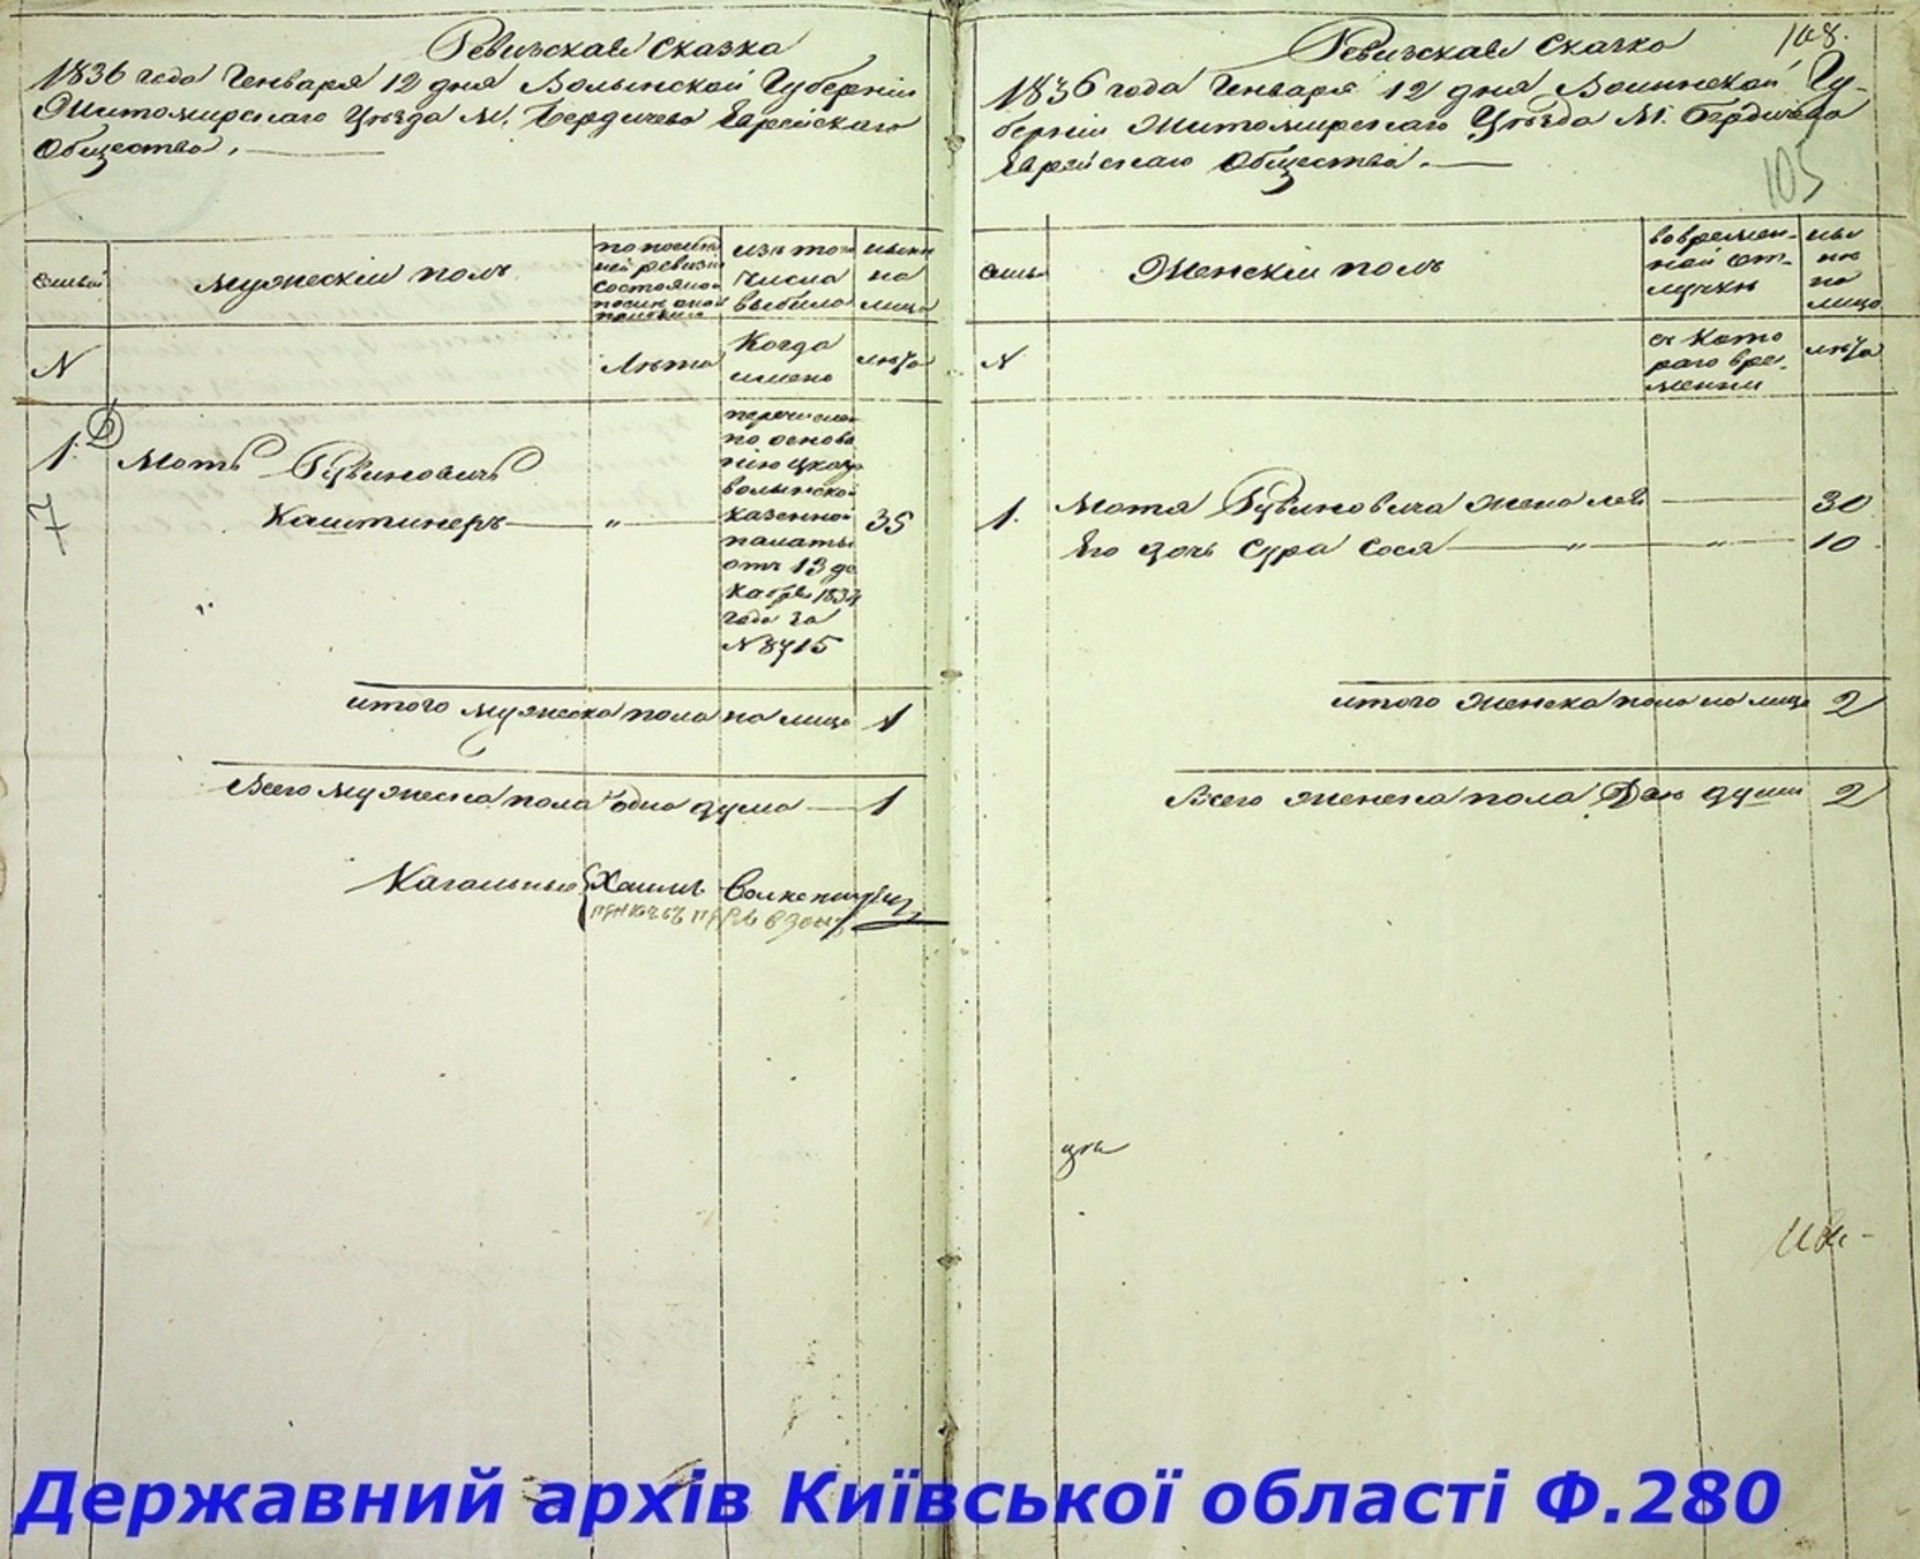 Ревизская Сказка
1836 года Генваря 12 дня Волынской Губернии
Житомирскаго Уезда М. Бердичева Еврейскаго
Общества.
Семьи
Мужескій полъ
из того
числа
выбыло
ныне
на
лицо
N
Лета
Когда
имено
лета
1.
7
Моть Рувиновичъ
Каштинеръ — " — 35
перечислен
по основа
нію указа
волынской
казенной
палаты
отъ 13 де
кабря
года за
N 8715
итого мужеска пола на лицо 1
Всего мужеска пола одна душа — 1
Кагальные Хаимъ
108.
Ревизская Сказка
1836 года Генваря 12 дня Волынской Гу-
берніи Житомирскаго Уезда М. Бердичева
Еврейскаго Общества. —
105
Семьи
Женскій полъ
во времен-
ной от-
лучке
ны
не
на
лицо
N
съ Кото
раго вре-
мении
лета
1. Мотя Рувиновича жена — 30
Его дочь Сура Сося — " — " — 10
итого женска пола на лицо 2
Всего женска пола Две души 2
Державний архів Київської області Ф.280